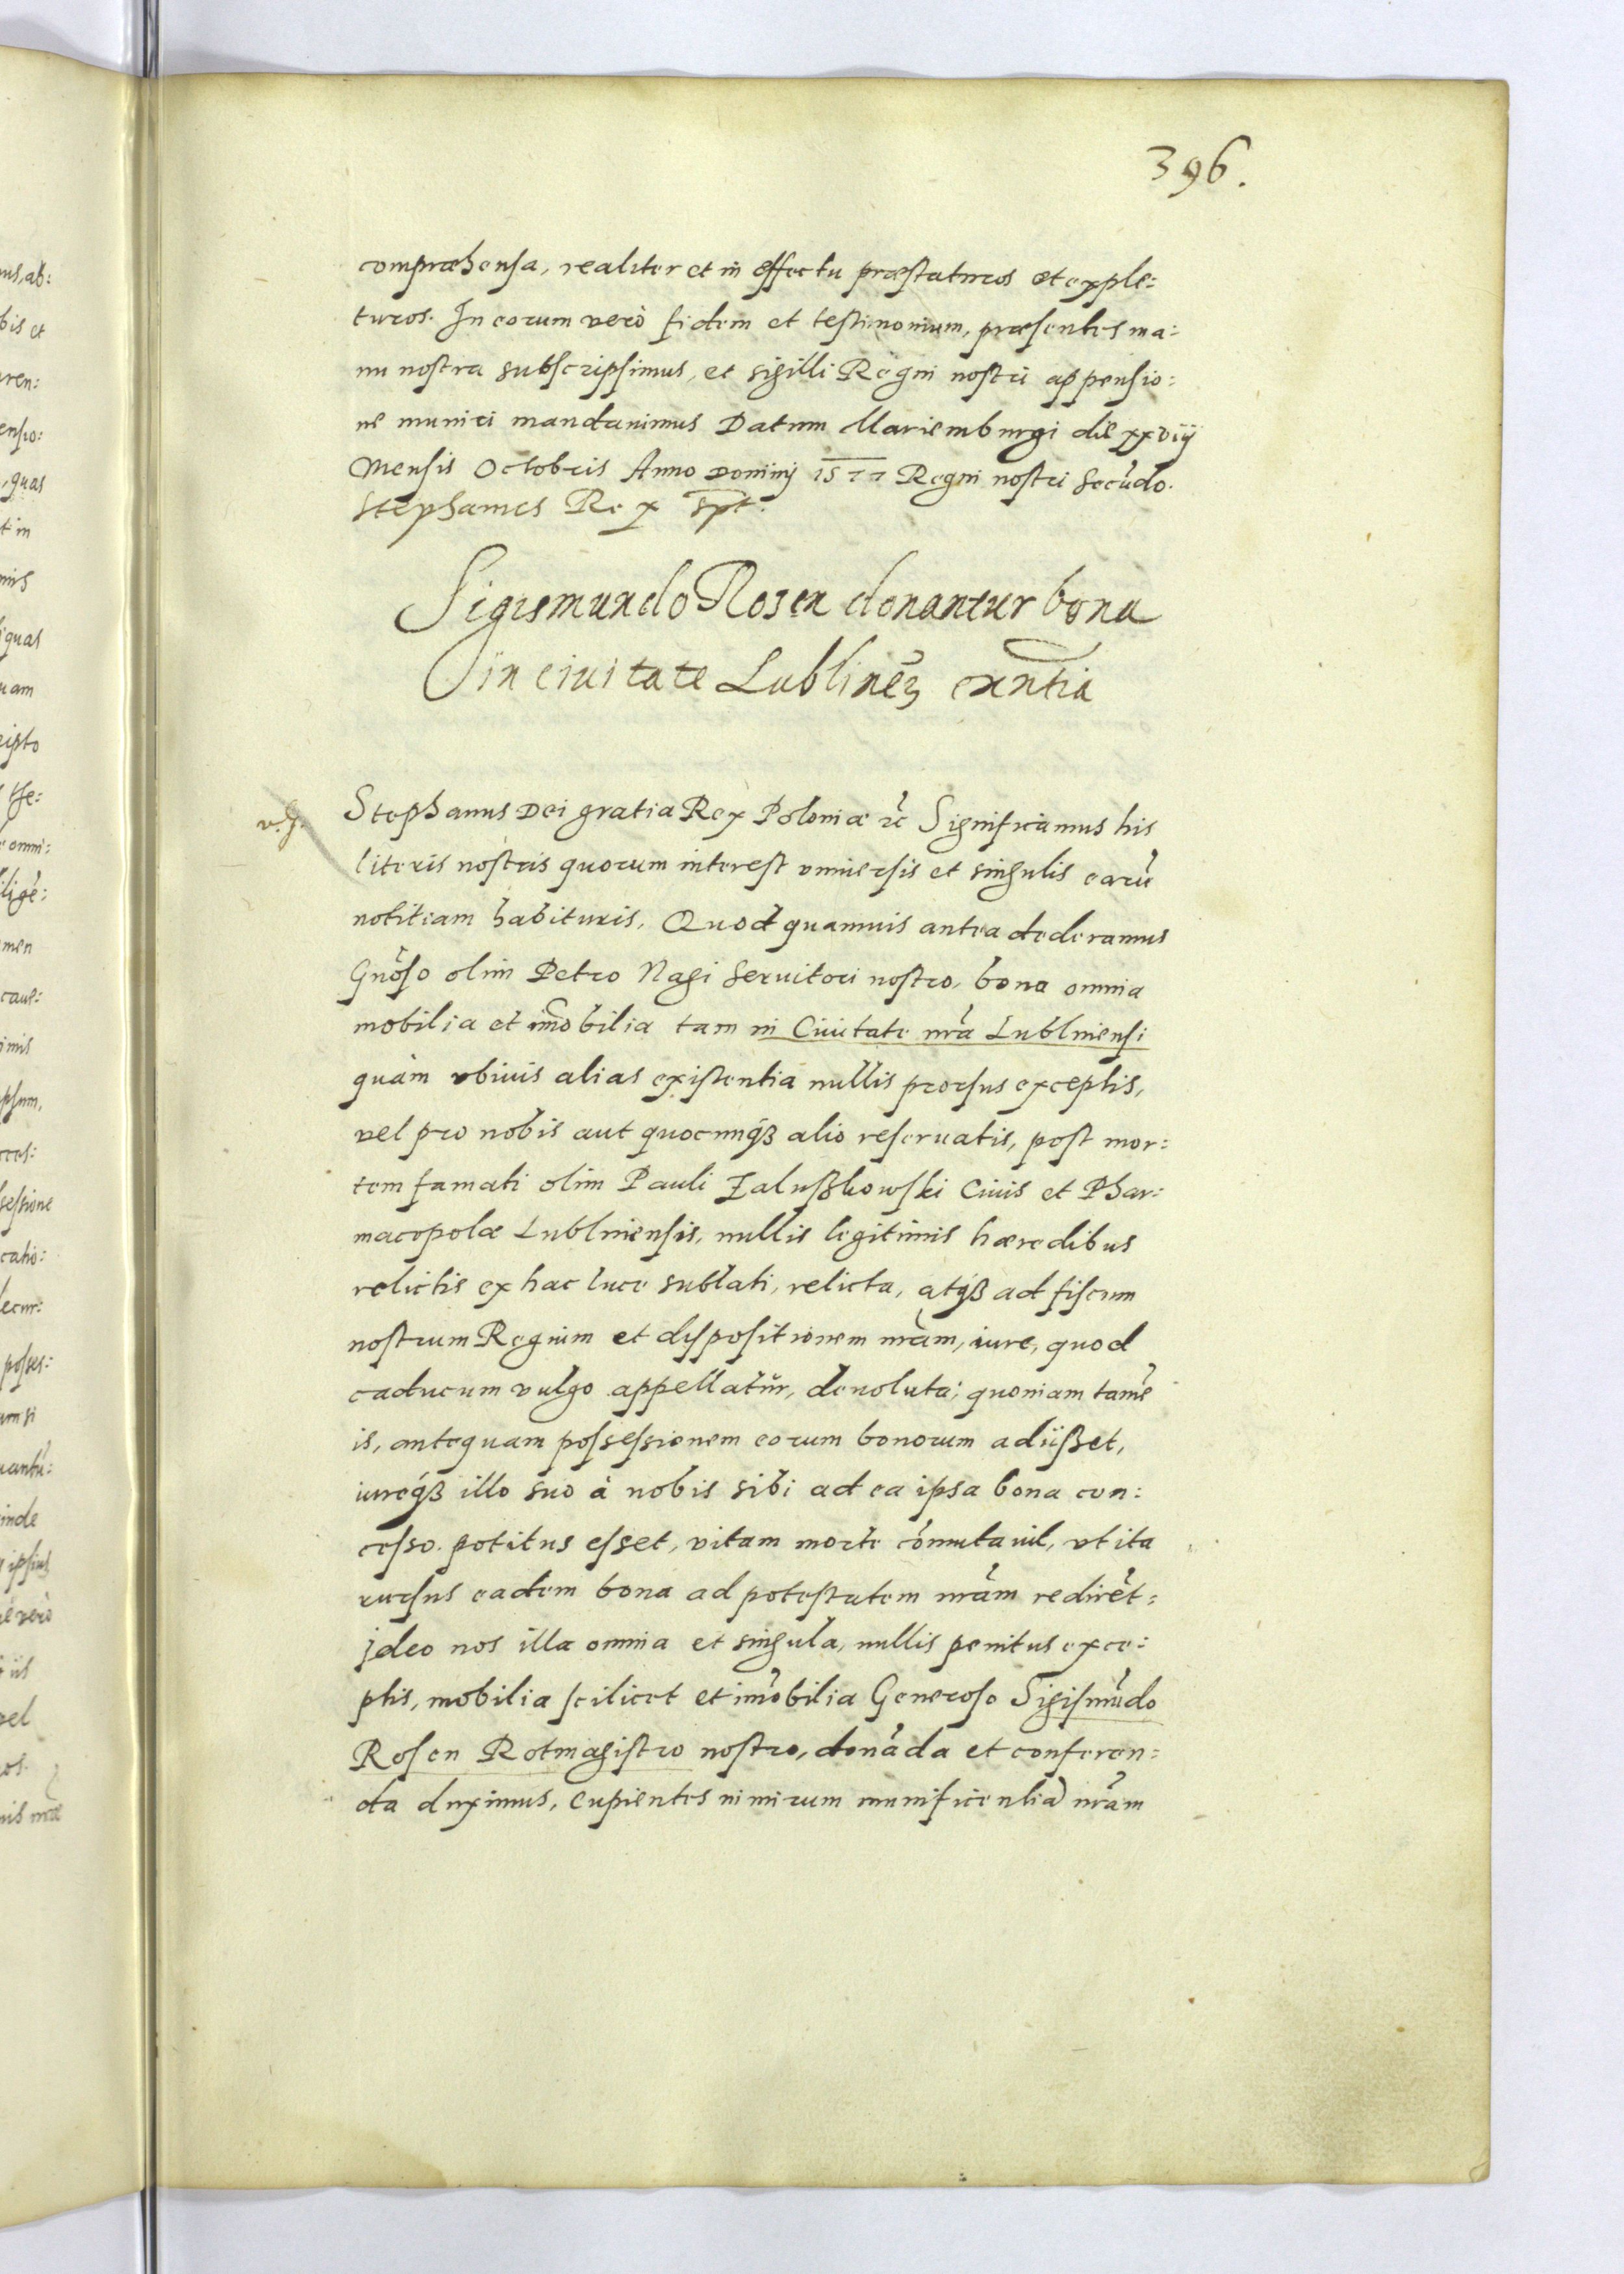 396.
compræhensa, realiter et in effectu præstaturos et exple:
turos. In eorum verò fidem et testimonium, præsentes ma:
nu nostra subscripsimus, et sigilli Regni nostri appensio:
ne muniri mandauimus Datum Mariemburgi die xxviij
Mensis Octobris Anno Dominj 1577 Regni nostri Secūdo.
Stephanus Rex spt.
Sigismundo Rosen donantur bona
in ciuitate Lublineṅ exn̄tia
v. g.
Stephanus Dei gratia Rex Poloniæ &c Significamus his
literis nostris quorum interest vniuersis et singulis earū
notitiam habituris. Quod quamuis antea dederamus
Gnōso olim Petro Nagi Seruitori nostro, bona omnia
mobilia et im̄obilia tam in Ciuitate nr̄a Lublinensi
quàm vbiuis alias existentia nullis prorsus exceptis,
vel pro nobis aut quocunqȝ alio reseruatis, post mor:
tem famati olim Pauli Zalußkowski Ciuis et Phar:
macopolæ Lublinensis, nullis legitimis hæredibus
relictis ex hac luce sublati, relicta, atqȝ ad fiscum
nostrum Regium et dispositionem nr̄am, iure, quod
caducum vulgo appellatur, deuoluta; quoniam tamē
is, antequam possessionem eorum bonorum adijßet,
iureqȝ illo suo à nobis sibi ad ea ipsa bona con:
cesso potitus esset, vitam morte cōmutauit, vt ita
rursus eadem bona ad potestatem nr̄am redirēt:
Ideo nos illa omnia et singula, nullis penitus exce:
ptis, mobilia scilicet et im̄obilia Generoso Sigismūdo
Rosen Rotmagistro nostro, donāda et conferen:
da duximus, Cupientes nimirum munificentiā nr̄am